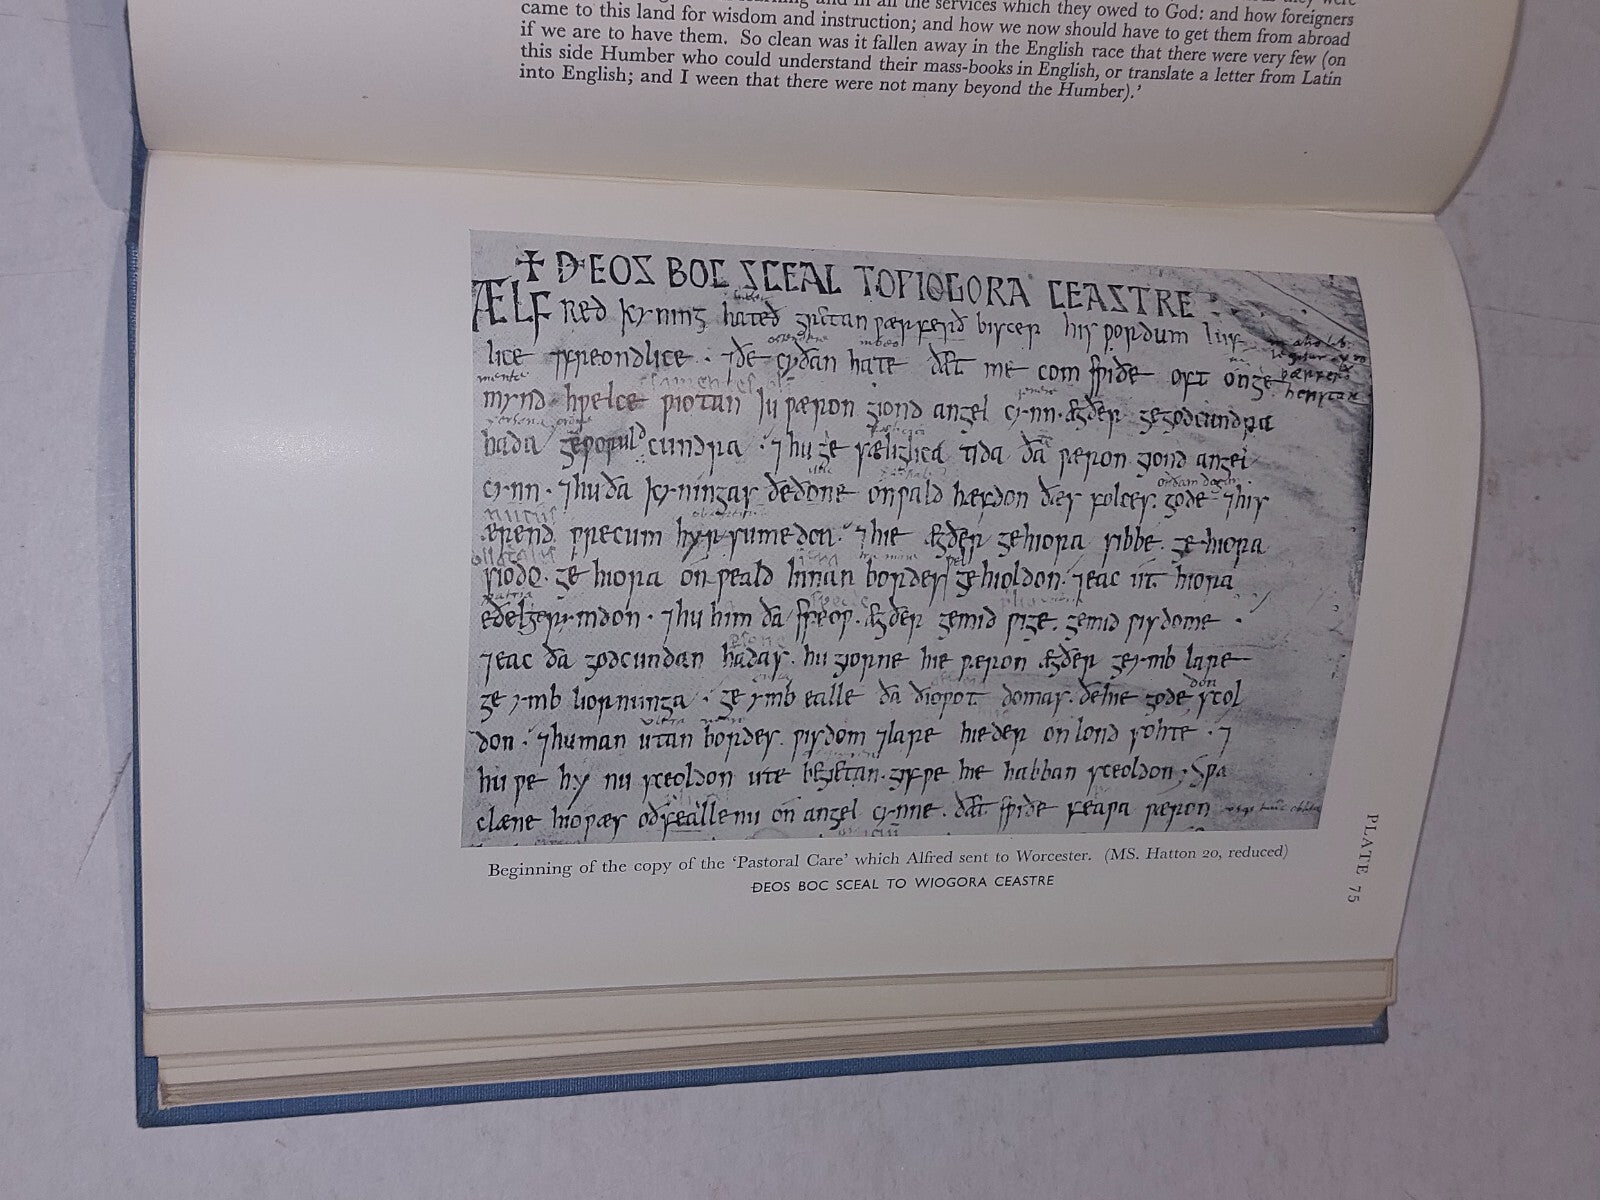 the services which they owed to God: and how foreigners
came to this land for wisdom and instruction; and how we now should have to get them from abroad
if we are to have them. So clean was it fallen away in the English race that there were very few (on
this side Humber who could understand their mass-books in English, or translate a letter from Latin
into English; and I ween that there were not many beyond the Humber).'
✝ ÐEOS BOC SCEAL TO ǷIOGORA CEASTRE
ÆLFRED kyning hateð gretan ƿærferð biscep his ƿordum luf
lice ⁊ freondlice · ⁊ ðe cyðan hate ðæt me com suiðe oft on ge
mynd hƿelce ƿiotan iu ƿæron giond angel cynn · ægðer ge godcundra
hada ge ƿoruldcundra · ⁊ hu gesæliglica tida ða ƿæron giond angel
cynn · ⁊ hu ða kyningas ðe ðone onƿald hæfdon ðæs folces · gode ⁊ his
ærend ƿrecum hyrsumedon · ⁊ hie ægðer ge hiora sibbe · ge hiora
siodo · ge hiora onƿeald innan bordes gehioldon · ⁊ eac ut hiora
eðel gerymdon · ⁊ hu him ða speoƿ · ægðer ge mid ƿige · ge mid ƿisdome ·
⁊ eac ða godcundan hadas · hu giorne hie ƿæron ægðer ge ymb lare
ge ymb liornunga · ge ymb ealle ða ðioƿot domas · ðe hie gode scol
don · ⁊ hu man utan bordes · ƿisdom ⁊ lare hieder on lond sohte · ⁊
hu ƿe hy nu sceoldon ute begietan · gif ƿe hie habban sceoldon ; Sƿa
clæne hio ƿæs oðfeallenu on angel cynne · ðæt suiðe feaƿa ƿæron
Beginning of the copy of the 'Pastoral Care' which Alfred sent to Worcester. (MS. Hatton 20, reduced)
ÐEOS BOC SCEAL TO WIOGORA CEASTRE
PLATE 75